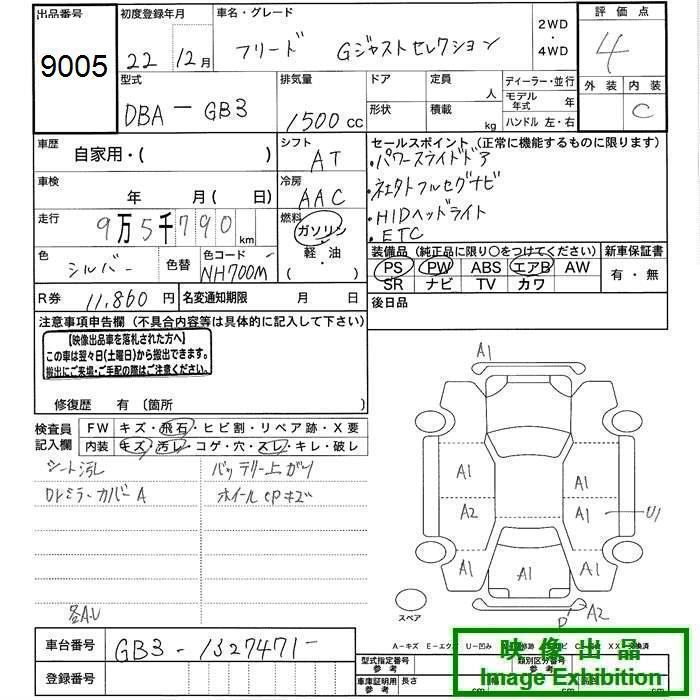 出品番号
9005
初度登録年月
22 12月
車名・グレード
フリード Gジャストセレクション
2WD
・
4WD
評価点
4
外装 内装
C
型式
DBA－GB3
排気量
1500 cc
ドア
形状
定員
人
積載
kg
ディーラー・並行
モデル年式 年
ハンドル 左・右
車歴
自家用・( )
シフト
AT
セールスポイント (正常に機能するものに限ります)
・パワースライドドア
・社外フルセグナビ
・HIDヘッドライト
・ETC
車検
年 月( 日)
冷房
AAC
走行
9万5千790km
燃料
ガソリン
・
軽・油
・( )
色
シルバー
色替
色コード
NH700M
装備品 (純正品に限り〇をつけてください)
PS PW ABS エアB AW
SR ナビ TV カワ
新車保証書
有・無
R券 11,860円
名変通知期限 月 日
後日品
注意事項申告欄 (不具合内容等は具体的に記入して下さい)
【映像出品車を落札された方へ】
この車は翌々日(土曜日)から搬出できます。
搬出にご来場・ご手配の際はご注意ください。
修復歴 有 (箇所 )
検査員
記入欄
FW キズ・飛石・ヒビ割・リペア跡・X要
内装 キズ・汚レ・コゲ・穴・スレ・キレ・破レ
シート汚レ
バッテリー上がり
Drミラーカバー A
ホイールcpキズ
各A・U
A1
A1
A1
A2
A1
U1
A1
A1
A1
A2
スペア
A－キズ E－エクボ U－凹み
車台番号
GB3－1327471－
登録番号
型式指定番号
参考
類別区分番号
参考
車庫証明用
参考
長さ
cm
cm
映像出品
Image Exhibition